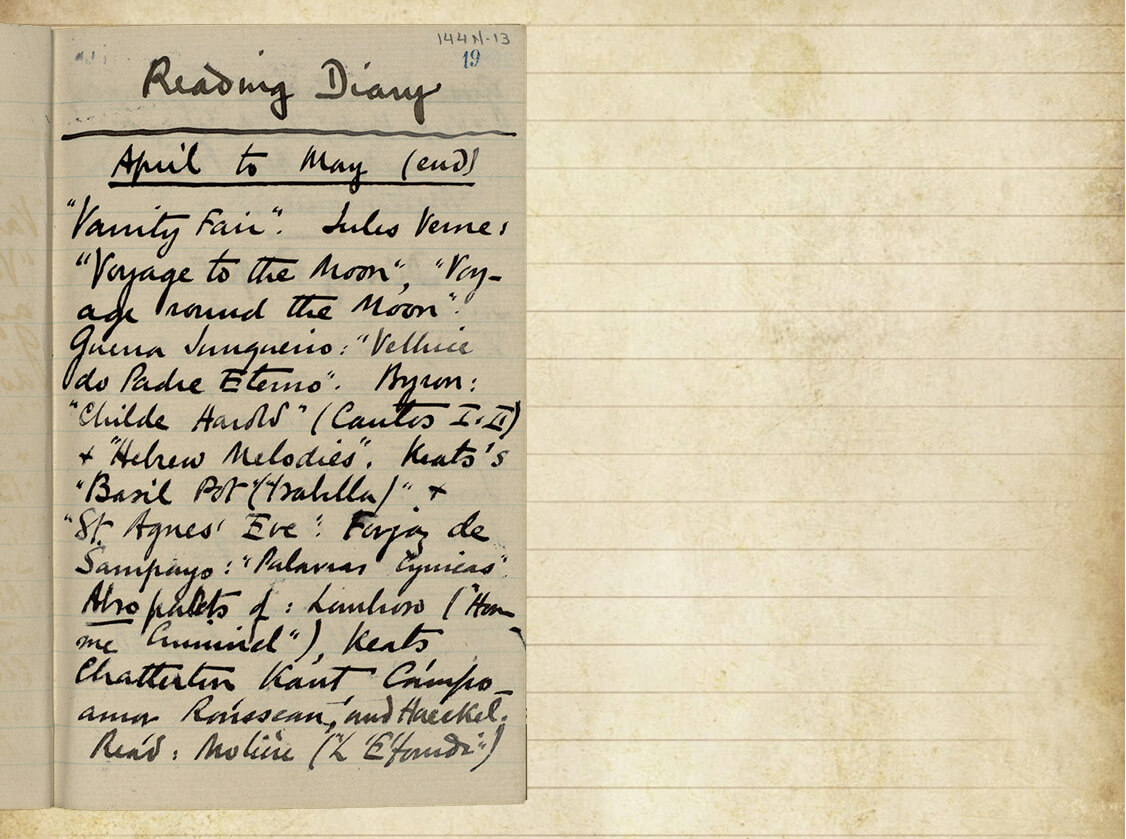 144N-13
19
Reading Diary
April to May (end)
"Vanity Fair". Jules Verne:
"Voyage to the Moon", "Voy-
age round the Moon".
Guerra Junqueiro: "Velhice
do Padre Eterno". Byron:
"Childe Harold" (Cantos I. II)
+ "Hebrew Melodies". Keats's
"Basil Pot (Isabella)" +
"St Agnes' Eve". Forjaz de
Sampayo: "Palavras Cynicas".
Also of: Lombroso ("Hom
me Criminel"), Keats
Chatterton Kant Campo_
amor Rousseau, and Haeckel.
Read: Molière ("L'Étourdi")